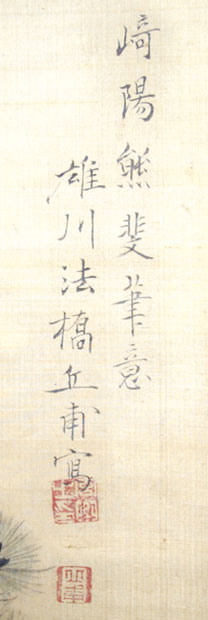 崎陽熊斐筆意
雄川法橋丘甫寫